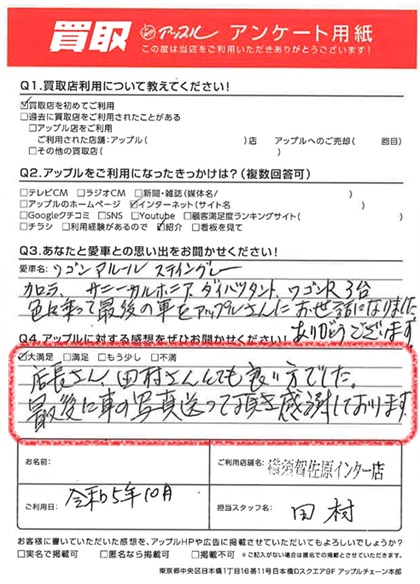 買取 アップル アンケート用紙
この度は当店をご利用いただきありがとうございます!
Q1.買取店利用について教えてください!
☑買取店を初めてご利用
□過去に買取店をご利用されたことがある
□アップル店をご利用
ご利用された店舗:アップル( )店 アップルへのご売却( 回目)
□その他の買取店( )
Q2.アップルをご利用になったきっかけは?(複数回答可)
□テレビCM □ラジオCM □新聞・雑誌(媒体名/ )
□アップルのホームページ ☑インターネット(サイト名 )
□Googleクチコミ □SNS □Youtube □顧客満足度ランキングサイト( )
□チラシ □利用経験があるので ☑紹介 □看板を見て
Q3.あなたと愛車との思い出をお聞かせください!
愛車名:ワゴンアルール スティングレー
カローラ、サニーカルホニア、ダイハツタント、ワゴンR3台
色々乗って最後の車をアップルさんにお世話になりました
ありがとうございます
Q4.アップルに対する感想をぜひお聞かせください!
☑大満足 □満足 □もう少し □不満
店長さん、田村さんとても良い方でした。
最後に車の写真送って頂き感謝しております
お名前:
ご利用店舗名: 横須賀佐原インター店
ご利用日: 令和5年10月
担当スタッフ名: 田村
お客様に書いていただいた感想を、アップルHPや広告に掲載させていただいてもよろしいでしょうか?
□実名で掲載可 □匿名なら掲載可 □掲載不可 ※ご記入がない場合は匿名での掲載とさせていただきます。
東京都中央区日本橋1丁目16番11号日本橋Dスクエア9F アップルチェーン本部